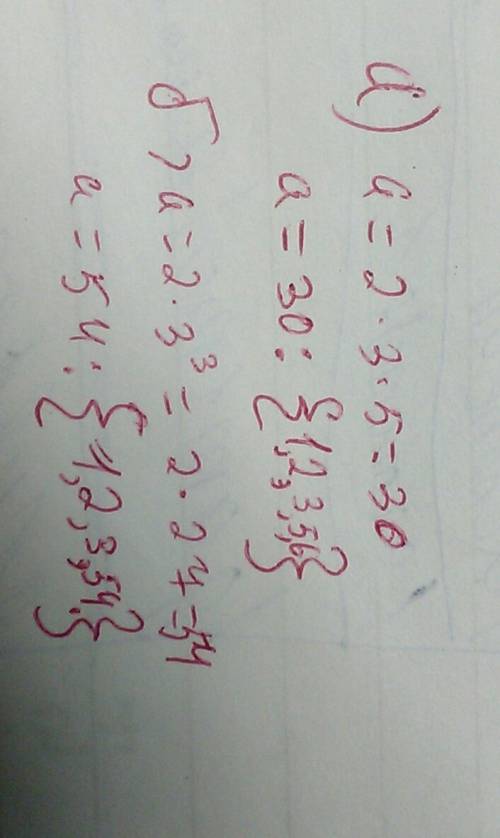 а) a = 2 · 3 · 5 = 30
a = 30 : {1, 2, 3, 5, 6}
б) a = 2 · 3³ = 2 · 27 = 54
a = 54 : {1, 2, 3, 54.}